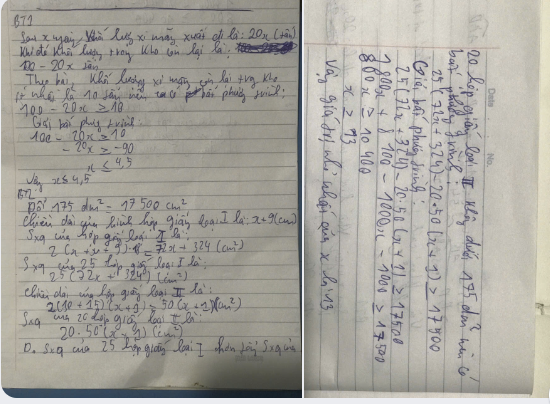 BT2
Sau x ngày khối lượng xi măng xuất đi là: 20x (tấn)
Khi đó khối lượng trong kho còn lại là:
100 - 20x tấn
Theo bài, khối lượng xi măng còn lại trong kho
ít nhất là 10 tấn nên ta có bất phương trình:
100 - 20x ≥ 10
Giải bất phương trình:
100 - 20x ≥ 10
- 20x ≥ -90
x ≤ 4,5
Vậy x ≤ 4,5
Đổi 175 dm² = 17500 cm²
Chiều dài của hình hộp giấy loại I là: x+9 (cm)
Sxq của hộp giấy loại I là:
72x + 324 (cm²)
Sxq của 25 hộp giấy loại I là:
25(72x + 324) (cm²)
Chiều dài của hộp giấy loại II là:
2(10+15)(x+1) = 50(x+1)(cm²)
Sxq của 20 hộp giấy loại II là:
20.50(x+1) (cm²)
Sxq của 25 hộp giấy loại I Sxq của
20 hộp giấy loại II không dưới 175 dm² nên có
bất phương trình:
25(72x+324)-20.50(x+1) ≥ 17500
Giải bất phương trình:
25(72x+324)-20.50(x+1) ≥ 17500
1800x + 8100 - 1000x - 1000 ≥ 17500
800x ≥ 10400
x ≥ 13
Vậy giá trị nhỏ nhất của x là 13